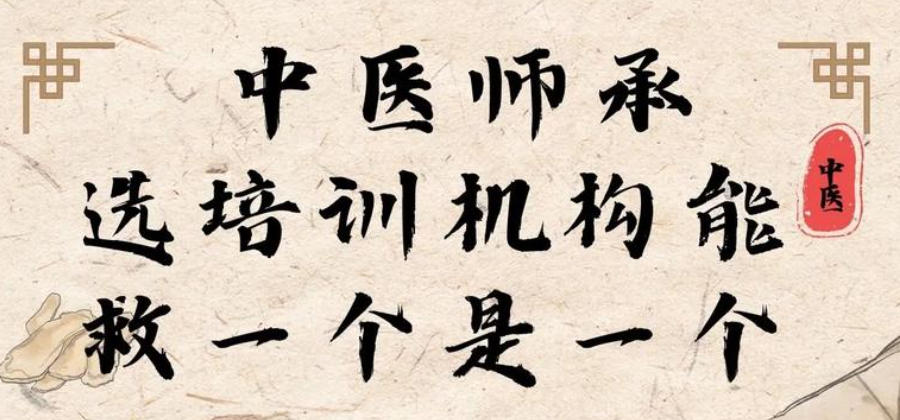 中医师承
选培训机构能
救一个是一个
中医